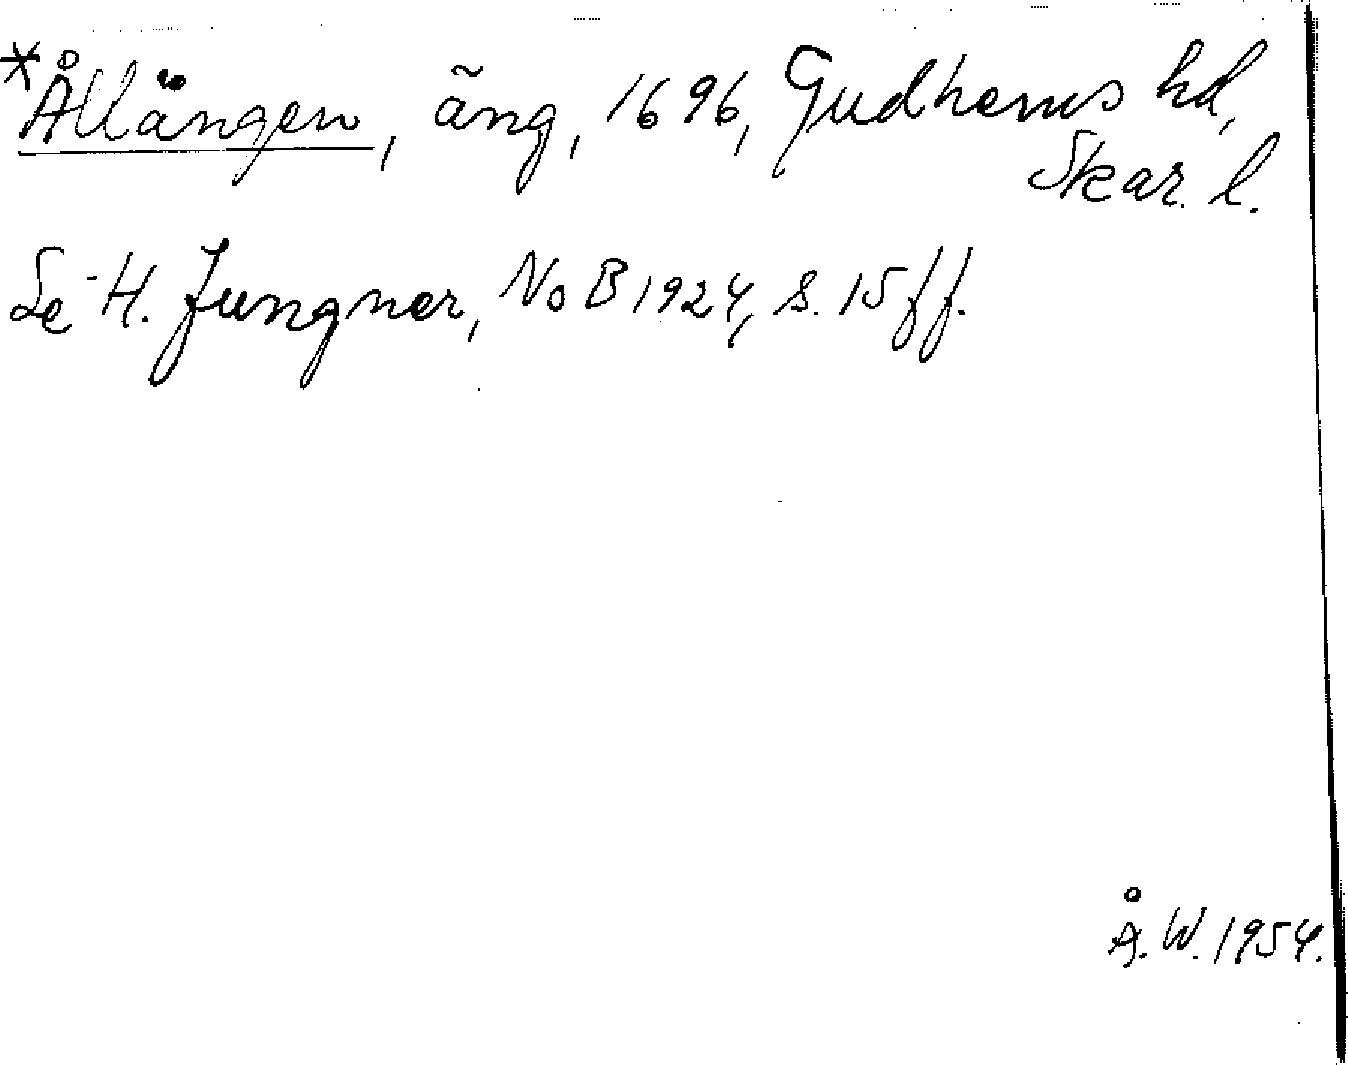 *Ållängen, äng, 1696, Gudhems hd,
Skar. l.
Se H. Jungner, NoB 1924, s. 15 ff.
Å. W. 1954.